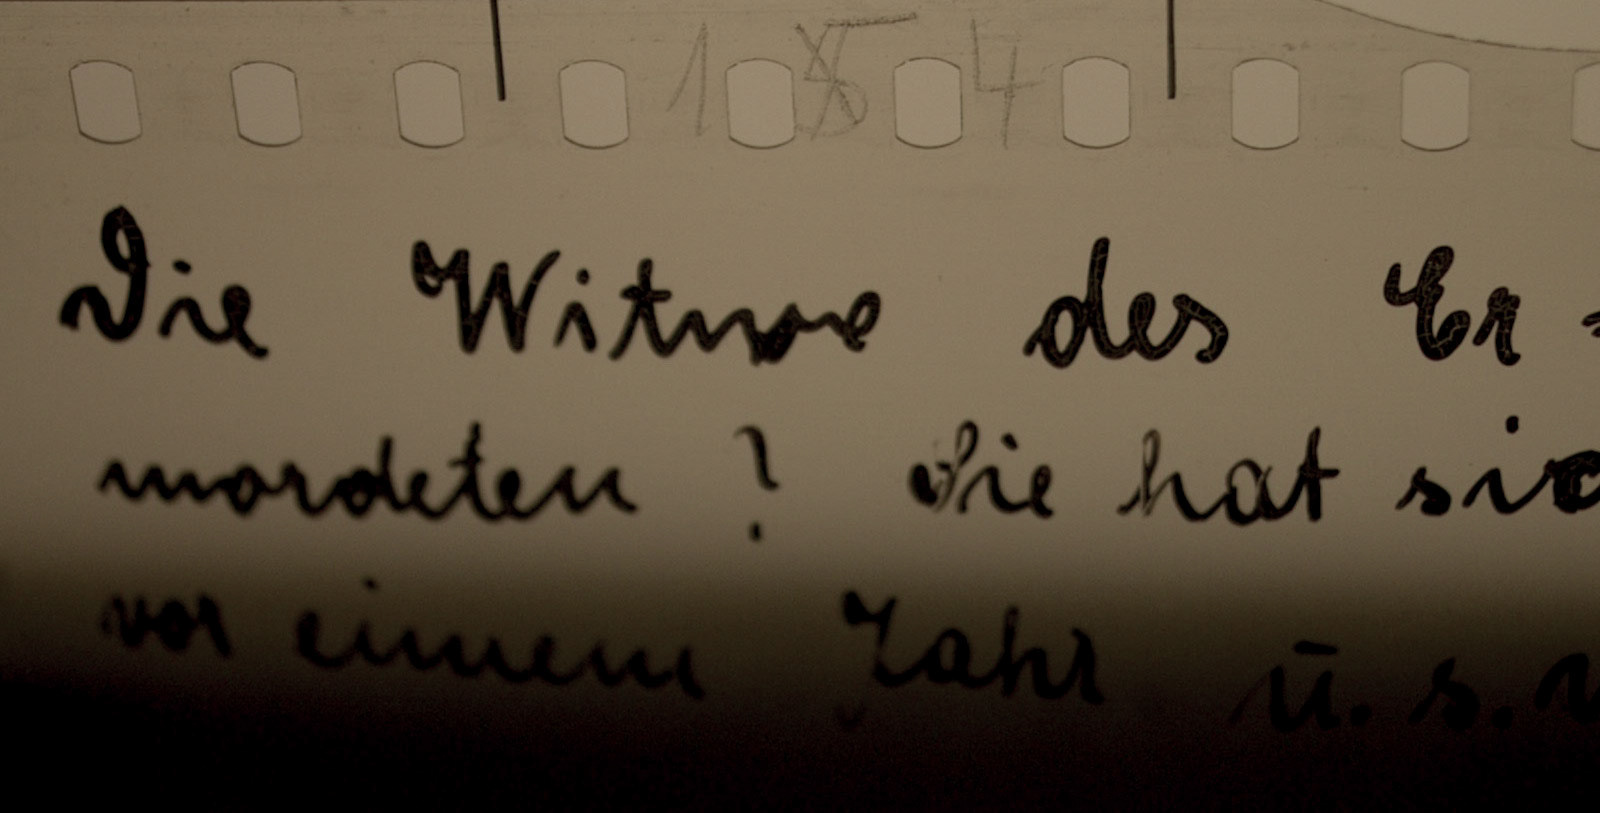 154
Die Witwe des Er-
mordeten? Sie hat sic
vor einem Jahr u.s.